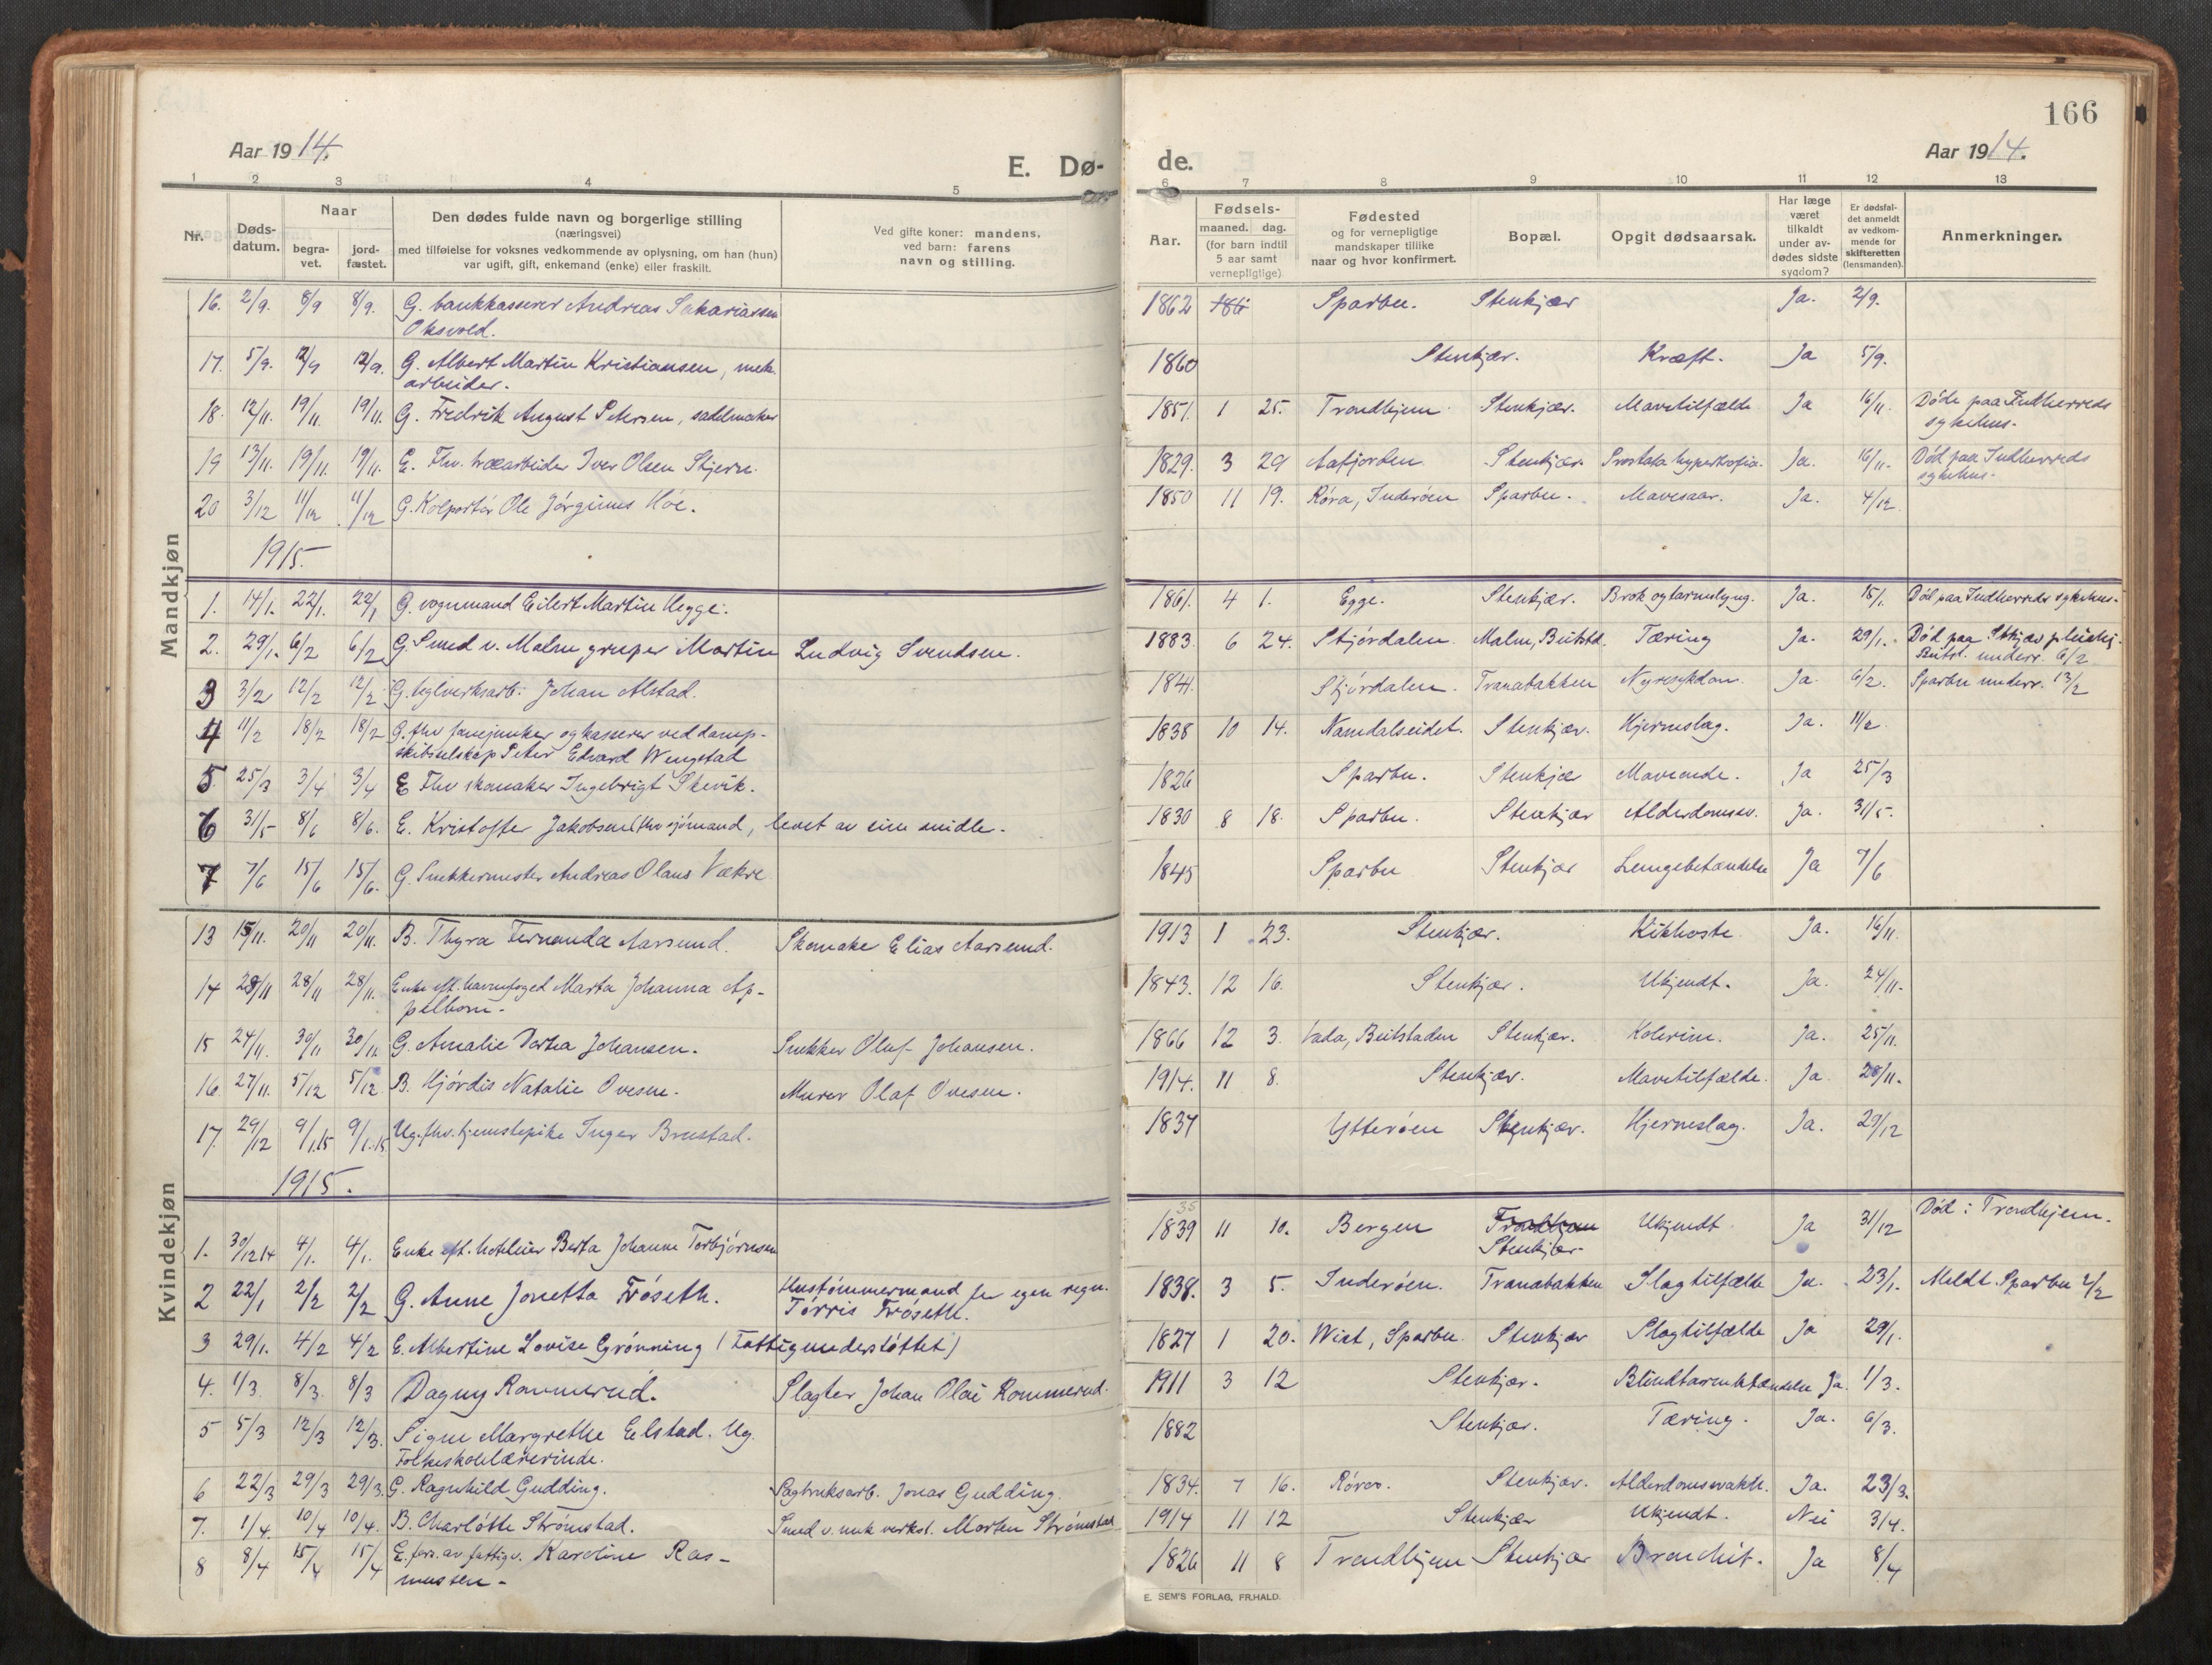 166
Aar 1914.
E. Dø-
de.
Aar 1914.
1 2 3 4 5
6 7 8 9 10 11 12 13
Nr.
Døds-
datum.
Naar
begra-
vet.
jord-
fæstet.
Den dødes fulde navn og borgerlige stilling
(næringsvei)
med tilføielse for voksnes vedkommende av oplysning, om han (hun)
var ugift, gift, enkemand (enke) eller fraskilt.
Ved gifte koner: mandens,
ved barn: farens
navn og stilling.
Aar.
Fødsels-
maaned. dag.
(for barn indtil
5 aar samt
vernepligtige)
Fødested
og for vernepligtige
mandskaper tillike
naar og hvor konfirmert.
Bopæl.
Opgit dødsaarsak.
Har læge
været
tilkaldt
under av-
dødes sidste
sygdom?
Er dødsfal-
det anmeldt
av vedkom-
mende for
skifteretten
(lensmanden).
Anmerkninger.
Mandkjøn
16. 2/9. 8/9 8/9. G. bankkasserer Andreas Sakariassen 1862 Sparbu. Stenkjær Ja. 2/9.
Oksvold.
17. 5/9. 12/9 12/9. G. Albert Martin Kristiansen, mek. 1860 Stenkjær. Kræft. Ja 5/9.
arbeider.
18. 12/11. 19/11. 19/11. G. Fredrik August Petersen, sadelmaker 1851. 1 25. Trondhjem. Stenkjær. Mavetilfælde Ja 16/11. Døde paa Indherreds
sykehus.
19 13/11. 19/11. 19/11. E. Fhv. træarbeider Iver Olsen Stjern. 1829. 3 29 Aafjorden. Stenkjær. Prostata hypertrofia. Ja. 16/11. Død paa Indherreds
sykehus.
20 3/12 11/12 11/12 G. Kolportør Ole Jørginus Høe. 1850 11 19. Røra, Inderøen Sparbu. Mavesaar. Ja. 4/12
1915.
1. 14/1. 22/1. 22/1 G. vognmand Eilert Martin Hegge. 1861. 4 1. Egge. Stenkjær. Brok og tarmslyng. Ja. 15/1. Død paa Indherreds sykehus.
2. 29/1. 6/2 6/2 G. Smed v. Malm gruper Martin Ludvig Svendsen. 1883 6 24. Stjørdalen. Malm, Beitstd. Tæring Ja. 29/1. Død paa Stkjær pleiehj.
Beitst. underr. 6/2
3 3/2 12/2 12/2 G. teglverksarb. Johan Alstad. 1841. Stjørdalen. Tranabakken Nyresykdom. Ja. 6/2. Sparbu underr. 13/2
4 11/2 18/2 18/2 G. fhv fanejunker og kasserer ved damp- 1838 10 14. Namdalseidet. Stenkjær. Hjerneslag. Ja. 11/2
skibsselskap Peter Edvard Wengstad
5. 25/3 3/4 3/4 E Fhv skomaker Ingebrigt Skevik. 1826 Sparbu. Stenkjær Maveonde. Ja 25/3
6 31/5 8/6 8/6. E. Kristoffer Jakobsen (fhv sjømand, levet av sine midle. 1830 8 18. Sparbu. Stenkjær Alderdomssv. Ja. 31/5.
7 7/6 15/6 15/6. G. Snekkermester Andreas Olaus Vækre 1845 Sparbu Stenkjær Lungebetændelse Ja 7/6
Kvindekjøn
13 15/11. 20/11 20/11. B. Thyra Fernanda Aarsund. Skomake Elias Aarsund. 1913 1 23. Stenkjær. Kikhoste. Ja. 16/11.
14 28/11 28/11. Enke eft. havnefoged Marta Johanna Ap- 1843. 12 16. Stenkjær. Ukjendt. Ja. 24/11.
pelbom.
15 24/11. 30/11 30/11 G. Amalie Dortea Johansen. Snekker Oluf Johansen. 1866 12 3. Vada, Beitstaden Stenkjær. Kolerine. Ja. 25/11.
16. 27/11. 5/12 5/12 B. Hjørdis Natalie Ovesen. Murer Olaf Ovesen. 1914. 11 8. Stenkjær. Mavetilfælde. Ja. 28/11.
17. 29/12 9/1.15 9/1.15 Ug. fhv. tjenestepike Inger Brustad. 1837 Ytterøen Stenkjær. Hjerneslag. Ja. 29/12
1915.
1. 30/12 14 4/1. 4/1. Enke eft. hoteleier Berta Johanne Torbjørnsen 1839 35 11 10. Bergen Trondhjem Ukjendt Ja 31/12 Død i Trondhjem.
Stenkjær
2 22/1 2/2 2/2 G. Anne Jonetta Frøseth. Hustømmermand for egen regn. 1838. 3 5. Inderøen. Tranabakken Slagtilfælde Ja. 23/1. Meldt Sparbu 2/2
Tørris Frøseth.
3 29/1. 4/2 4/2 E. Albertine Lovise Grønning (Fattigunderstøttet) 1827 1 20. Wist, Sparbu. Stenkjær Slagtilfælde Ja 29/1.
4. 1/3 8/3. 8/3 Dagny Rommerud. Slagter Johan Olai Rommerud. 1911 3 12 Stenkjær. Blindtarmbetændelse Ja. 1/3.
5 5/3 12/3 12/3. Signe Margrethe Eilstad. Ug. 1882 Stenkjær. Tæring. Ja. 6/3.
Folkeskolelærerinde.
6 22/3 29/3 29/3. G. Ragnhild Gudding. Sagbruksarb. Jonas Gudding. 1834. 7 16. Røros. Stenkjær. Alderdomssvakh. Ja. 23/3.
7. 1/4. 10/4 10/4. B. Charlotte Strømstad. Smed v. mek verkst. Morten Strømstad 1914 11 12 Stenkjær Ukjendt. Nei 3/4.
8 8/4 15/4 15/4 E. fors. av fattigv. Karoline Ras- 1826 11 8 Trondhjem Stenkjær Bronchit. Ja 8/4
mussen
E. SEM'S FORLAG, FR.HALD.